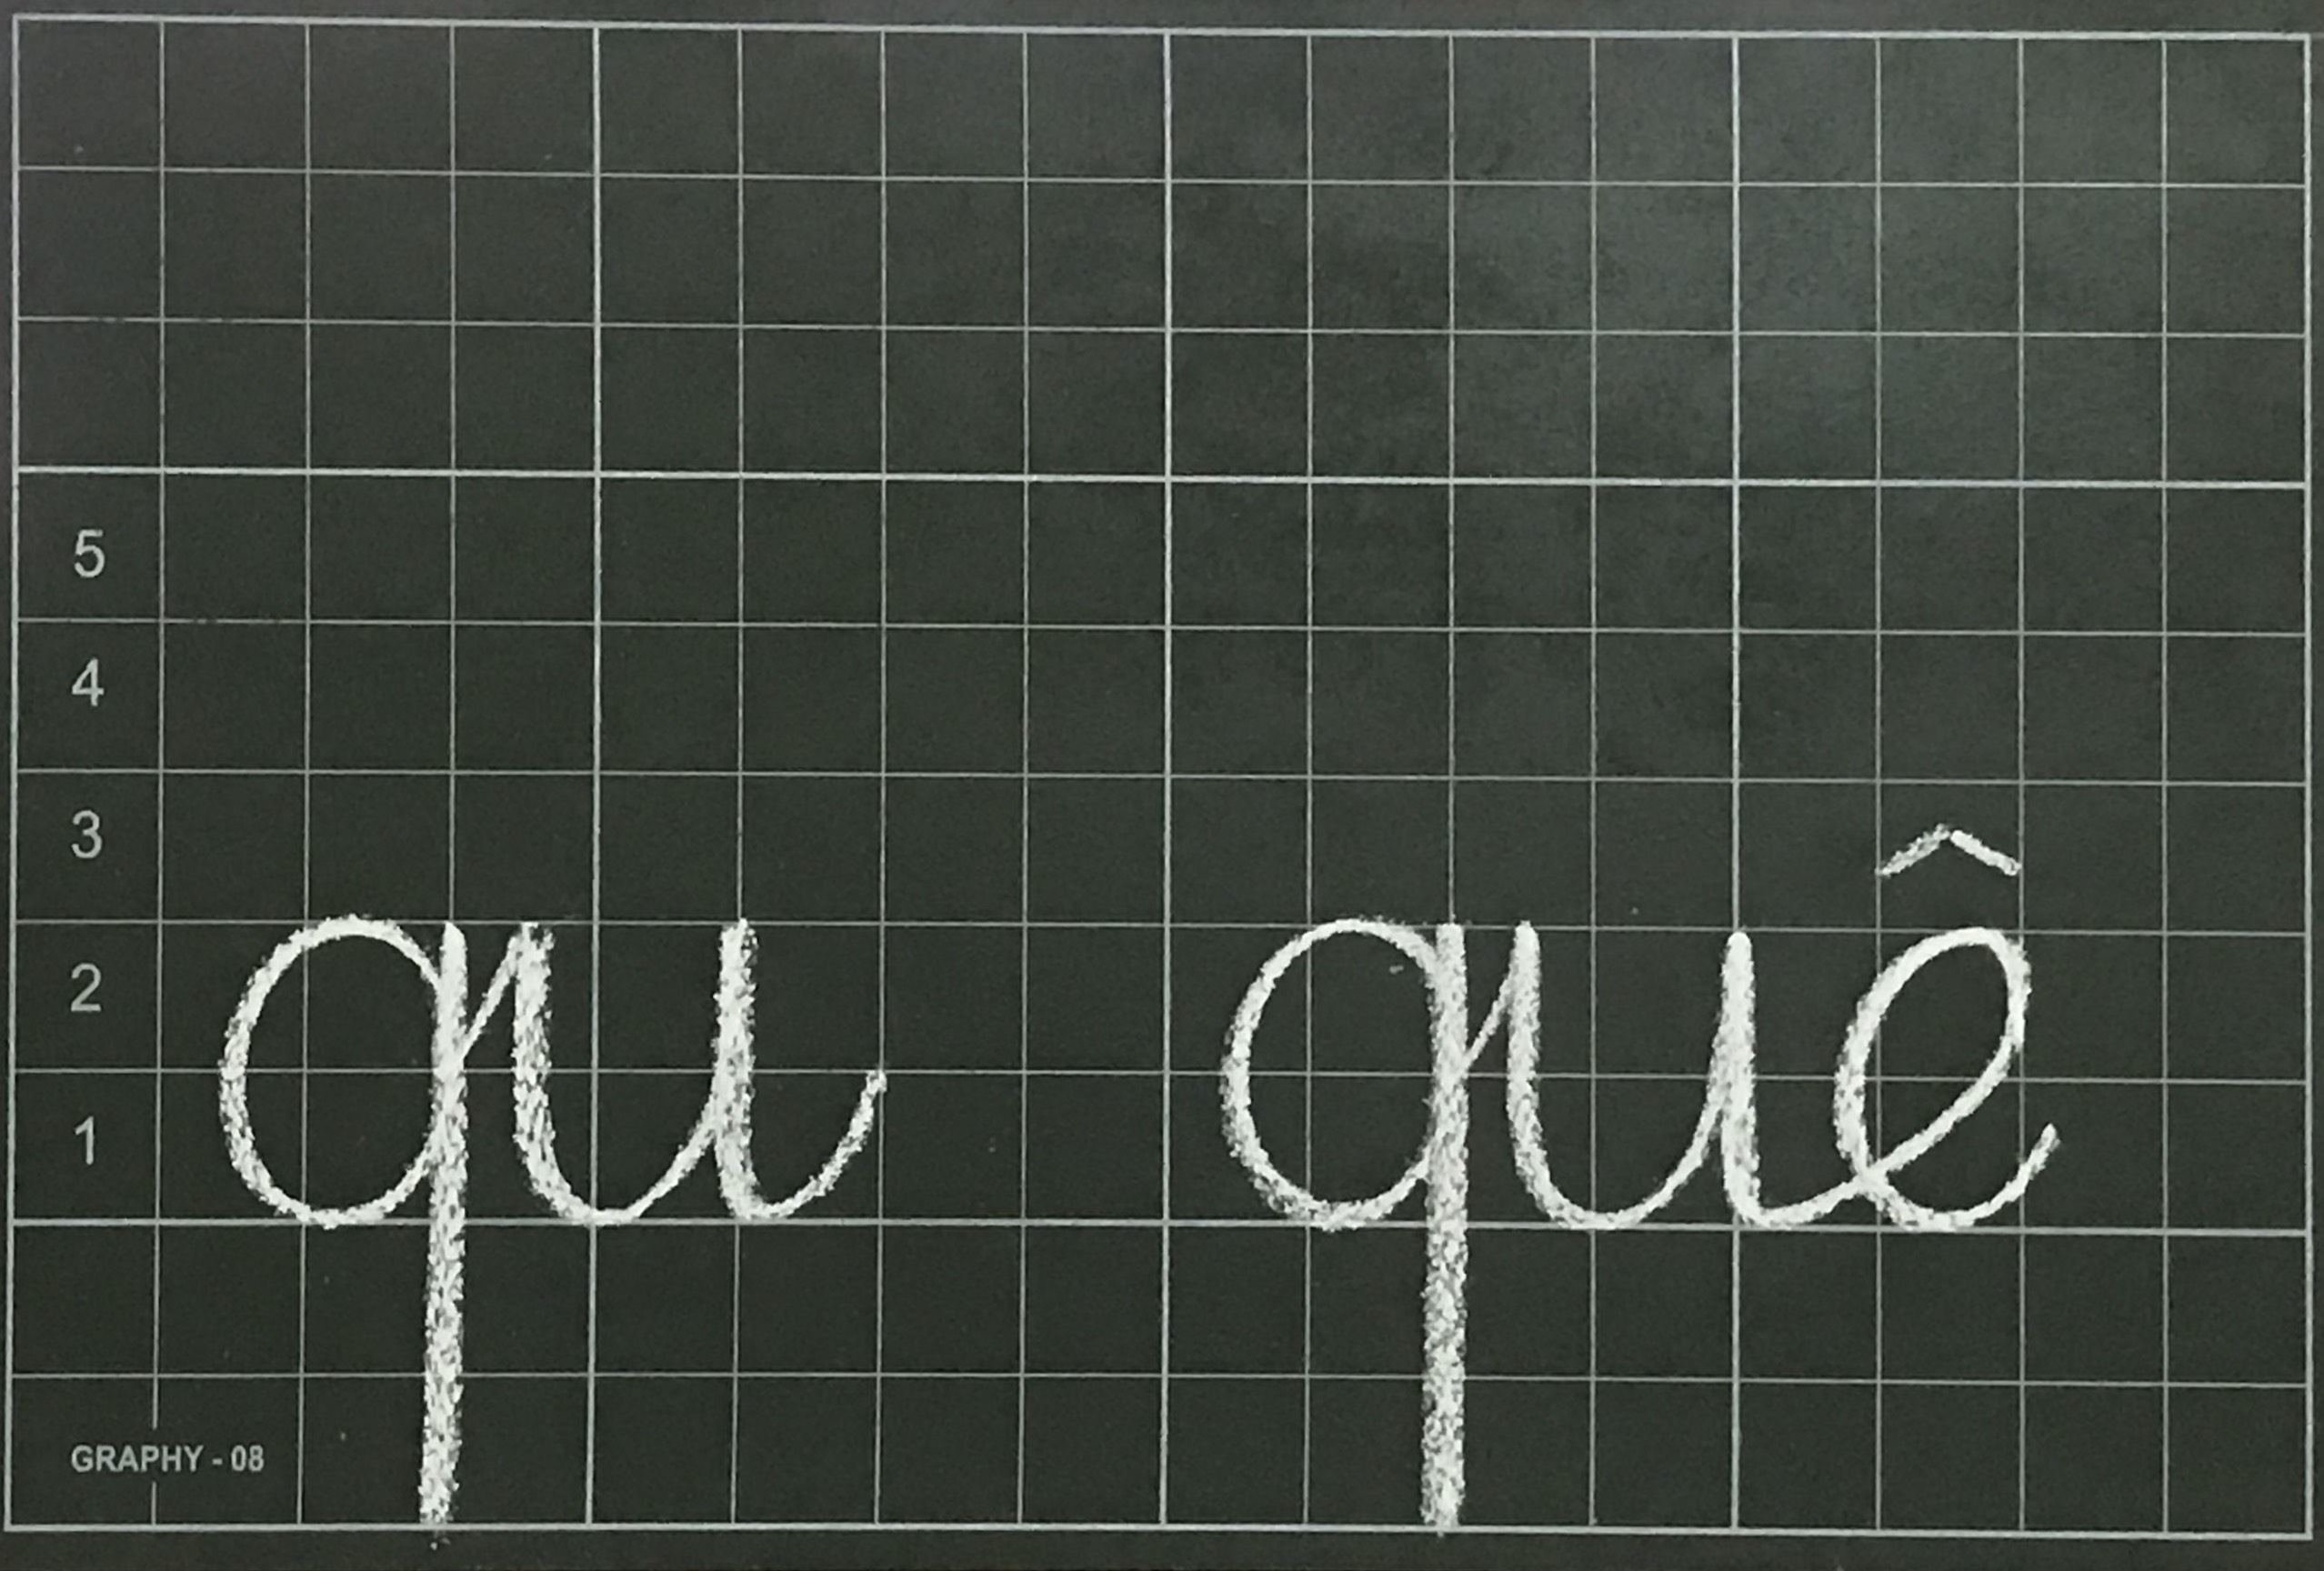 5
4
3
2
1
qu quê
GRAPHY - 08